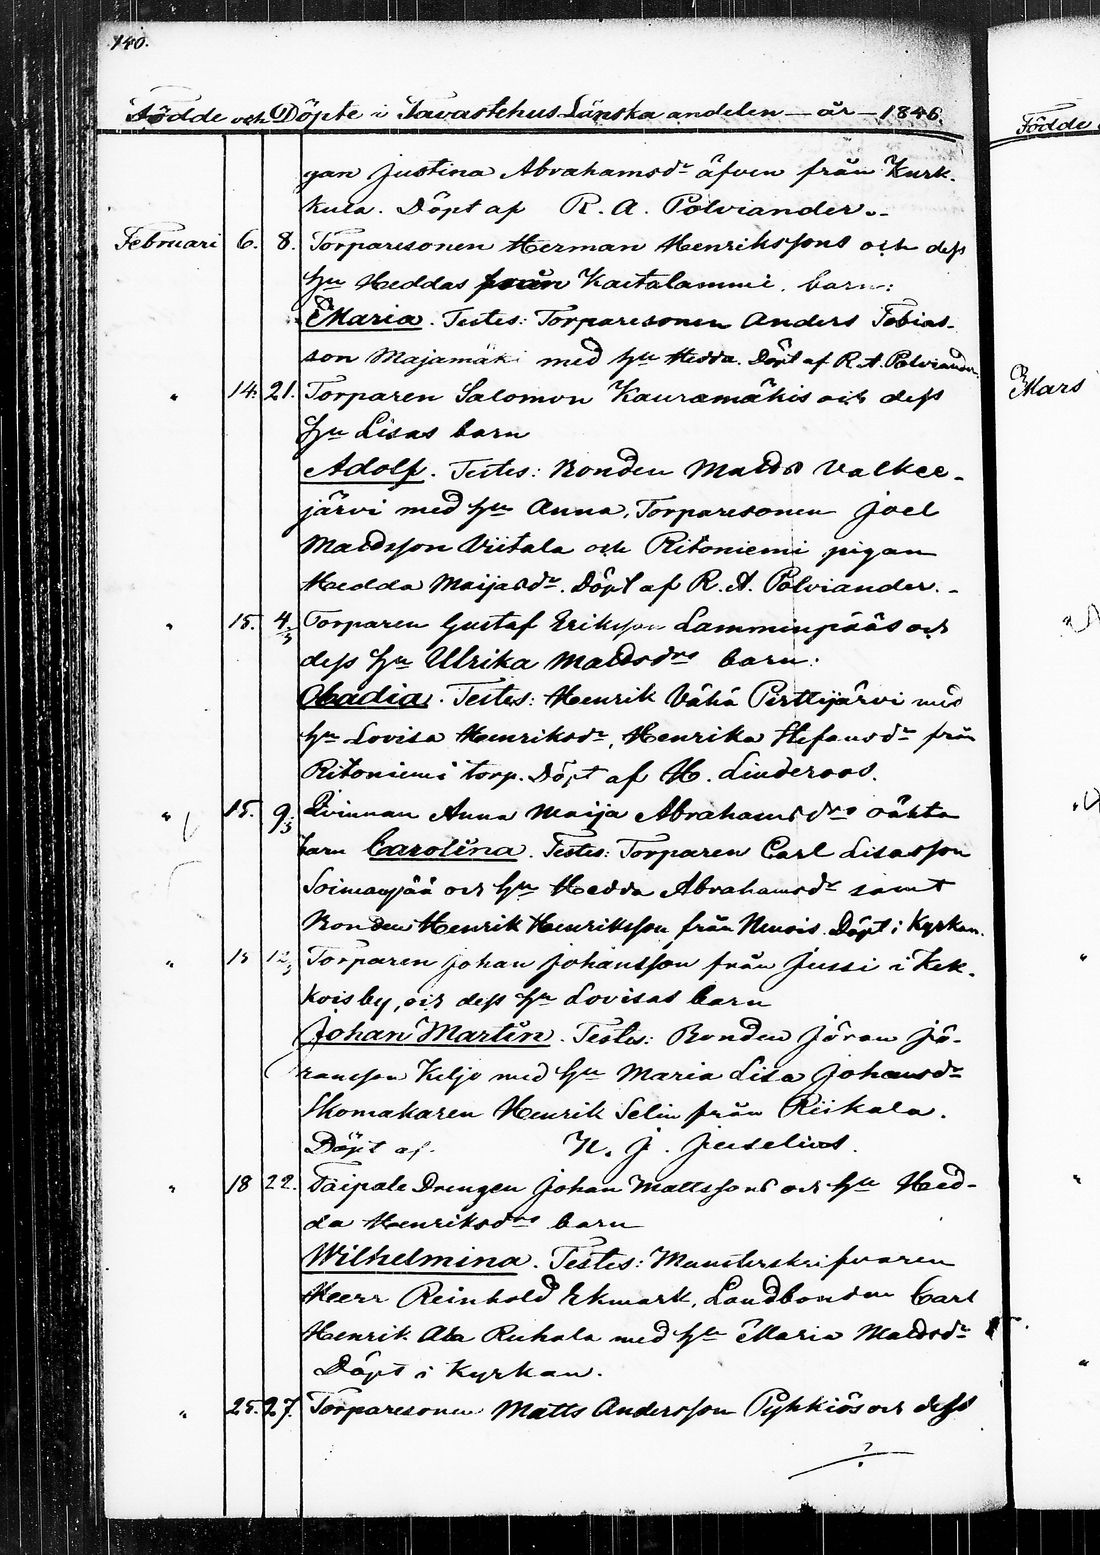 140.
Födde och Döpte i Tavastehus Länska andelen — år — 1846.
gan Justina Abrahamsdr äfven från Kurk-
kula. Döpt af R. A. Polviander.-
Februari 6. 8. Torparesonen Herman Henrikssons och dess
hu Heddas från Kaitalammi barn:
Maria. Testes: Torparesonen Anders Tobias-
son Majamäki med hu Hedda. Döpt af R. A. Polviander.
" 14. 21. Torparen Salomon Kauramäkis och dess
hu Lisas barn
Adolf. Testes: Bonden Matts Valkee-
järvi med hu Anna, Torparesonen Joel
Mattsson Viitala och Ritoniemi pigan
Hedda Maijasdr. Döpt af R. A. Polviander.-
" 15. 4/3 Torparen Gustaf Eriksson Lamminpääs och
dess hu Ulrika Mattsdrs barn:
Obadia. Testes: Henrik Vähä Perttijärvi med
hu Lovisa Henriksdr, Henrika Stefansdr från
Ritoniemi torp. Döpt af H. Linderoos.
" 15. 9/3 Qvinnan Anna Maija Abrahamsdrs oäkta
barn Carolina. Testes: Torparen Carl Lisasson
Soimanpää och hu Hedda Abrahamsdr samt
Bonden Henrik Henriksson från Nensis. Döpt i Kyrkan.
" 15 12/3 Torparen Johan Johansson från Jussi i Kek-
kois by, och dess hu Lovisas barn
Johan Martin. Testes: Bonden Jöran Jö-
ransson Keljo med hu Maria Lisa Johansdr
Skomakaren Henrik Selin från Riikala.
Döpt af N. J. Juselius.
" 18 22. Taipale Drengen Johan Mattssons och hu Hed-
da Henriksdrs barn
Wilhelmina. Testes: Mansterskrifvaren
Herr Reinhold Ekmark, Landbonden Carl
Henrik Ala Ruhala med hu Maria Mattsdr
Döpt i Kyrkan.
" 25. 27. Torparesonen Matts Andersson Pyhkiös och dess
Födde
Mars